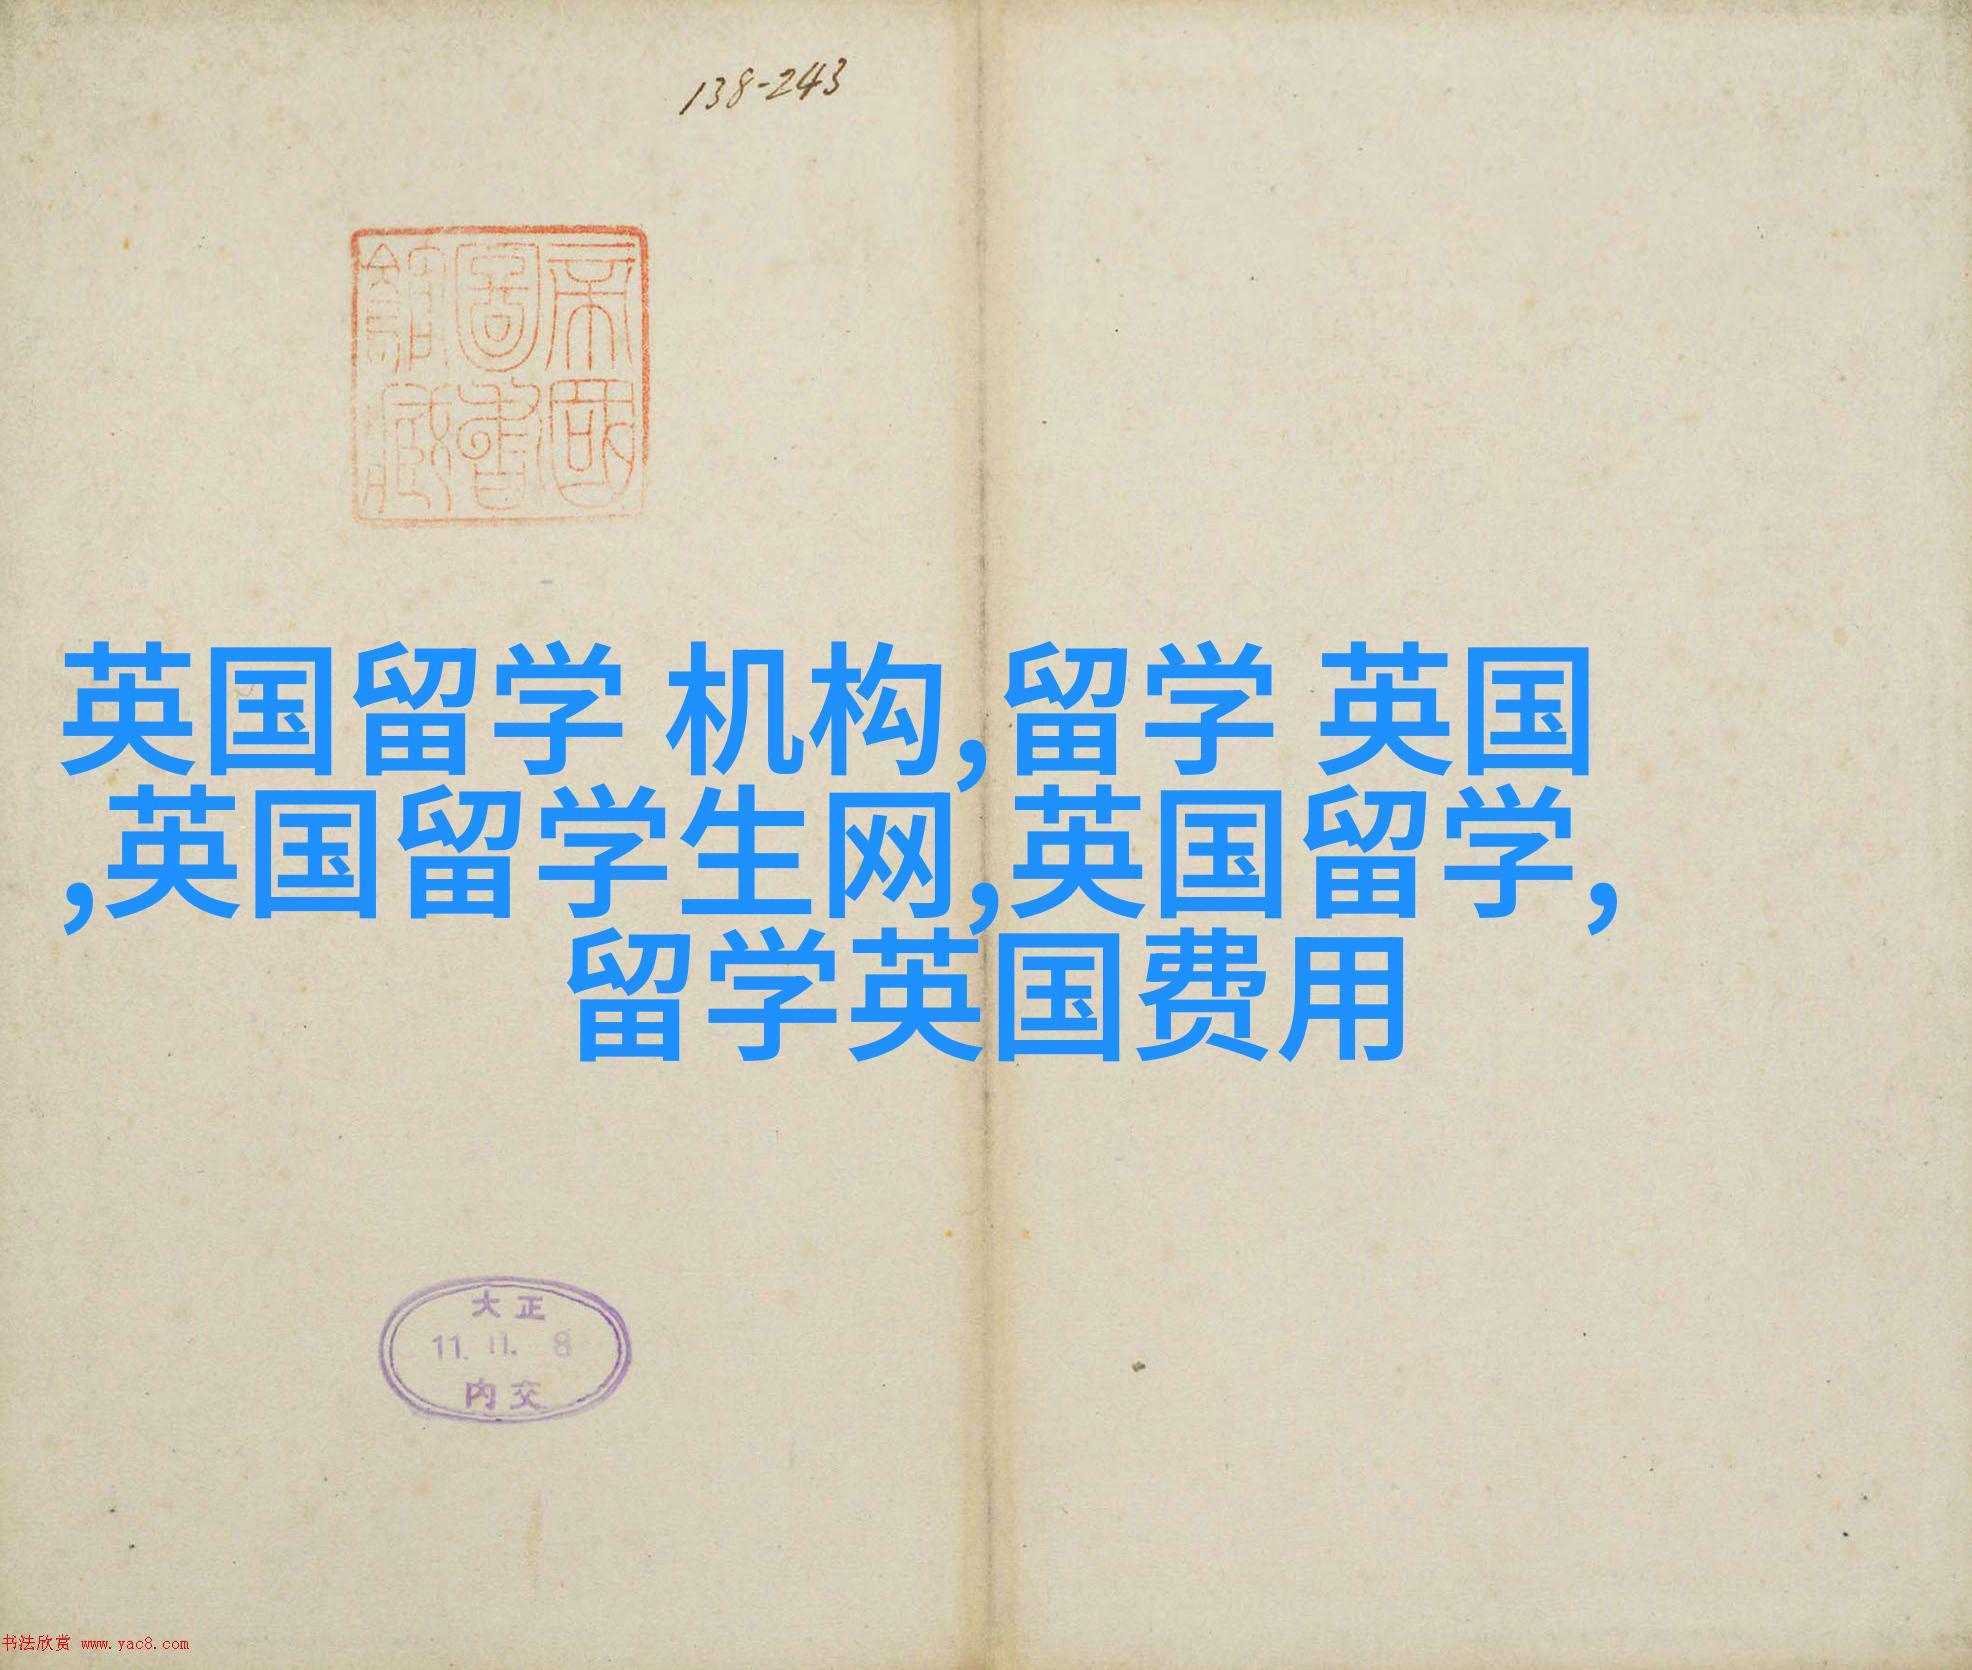 138-243
帝國
圖書
館藏
英国留学 机构,留学 英国
,英国留学生网,英国留学,
留学英国费用
大正
11. 11. 8
内交
书法欣赏 www.yac8.com